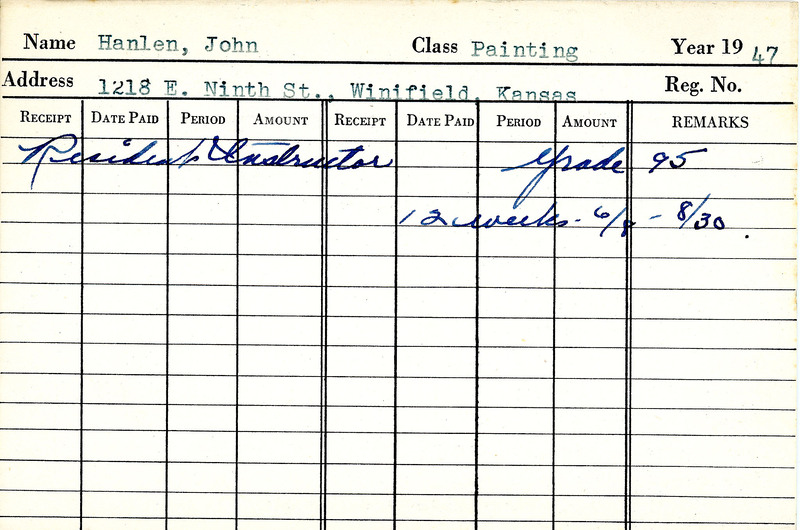 Name Hanlen, John Class Painting Year 1947
Address 1218 E. Ninth St., Winifield, Kansas Reg. No.
RECEIPT DATE PAID PERIOD AMOUNT RECEIPT DATE PAID PERIOD AMOUNT REMARKS
Resident Instructor Grade 95
12 weeks - 6/9 - 8/30.